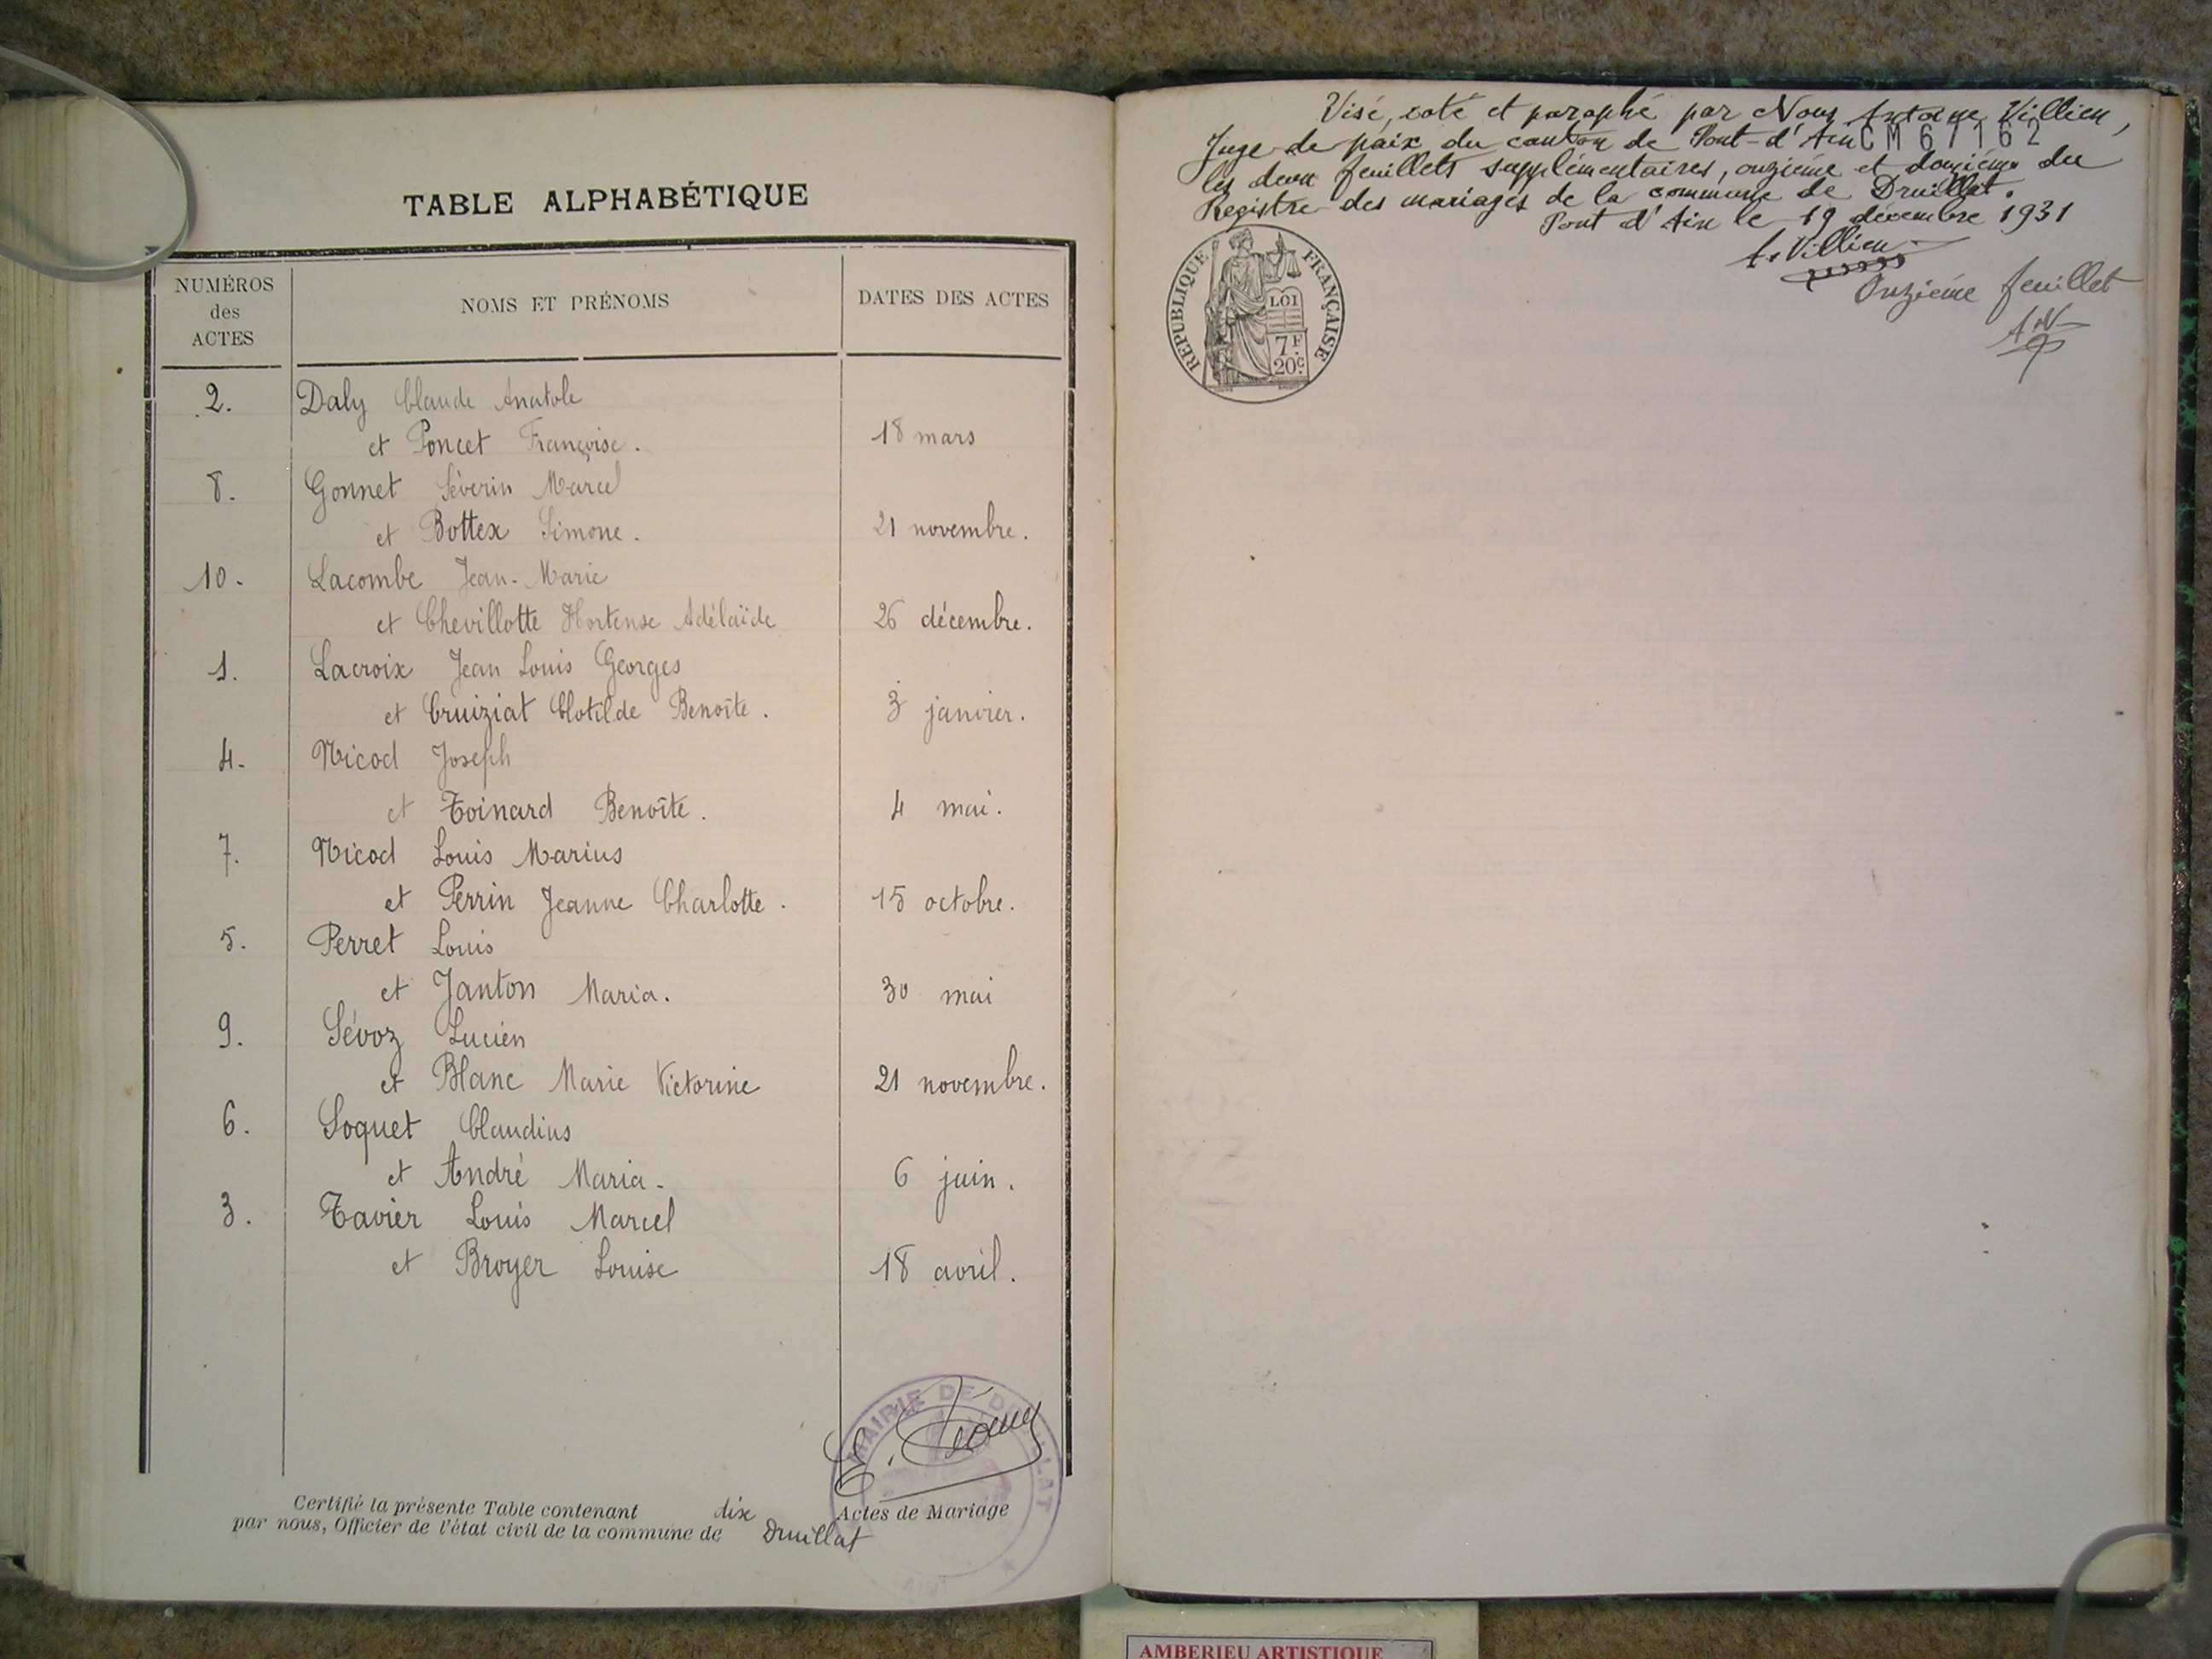 TABLE ALPHABÉTIQUE
NUMÉROS
des
ACTES
NOMS ET PRÉNOMS
DATES DES ACTES
2. Daly Claude Anatole
et Poncet Françoise. 18 mars
8. Gonnet Séverin Marcel
et Bottex Simone. 21 novembre.
10. Lacombe Jean-Marie
et Chevillotte Hortense Adélaïde 26 décembre.
1. Lacroix Jean Louis Georges
et Cruiziat Clotilde Benoîte. 3 janvier.
4. Nicod Joseph
et Toinard Benoîte. 4 mai.
7. Nicod Louis Marius
et Perrin Jeanne Charlotte. 15 octobre.
5. Perret Louis
et Janton Maria. 30 mai
9. Sévoz Lucien
et Blanc Marie Victorine 21 novembre.
6. Soquet Claudius
et André Maria. 6 juin.
3. Tavier Louis Marcel
et Broyer Louise 18 avril.
MAIRIE DE DRUILLAT
Certifié la présente Table contenant dix Actes de Mariage
par nous, Officier de l'état civil de la commune de Druillat
Visé, coté et paraphé par Nous Antoine Villien,
Juge de paix du canton de Pont-d'Ain
CM67162
les deux feuillets supplémentaires, onzième et douzième du
Registre des mariages de la commune de Druillat.
Pont d'Ain le 19 décembre 1931
A. Villien
Onzième feuillet
AV
RÉPUBLIQUE FRANÇAISE
LOI
7F
20c
AMBERIEU ARTISTIQUE